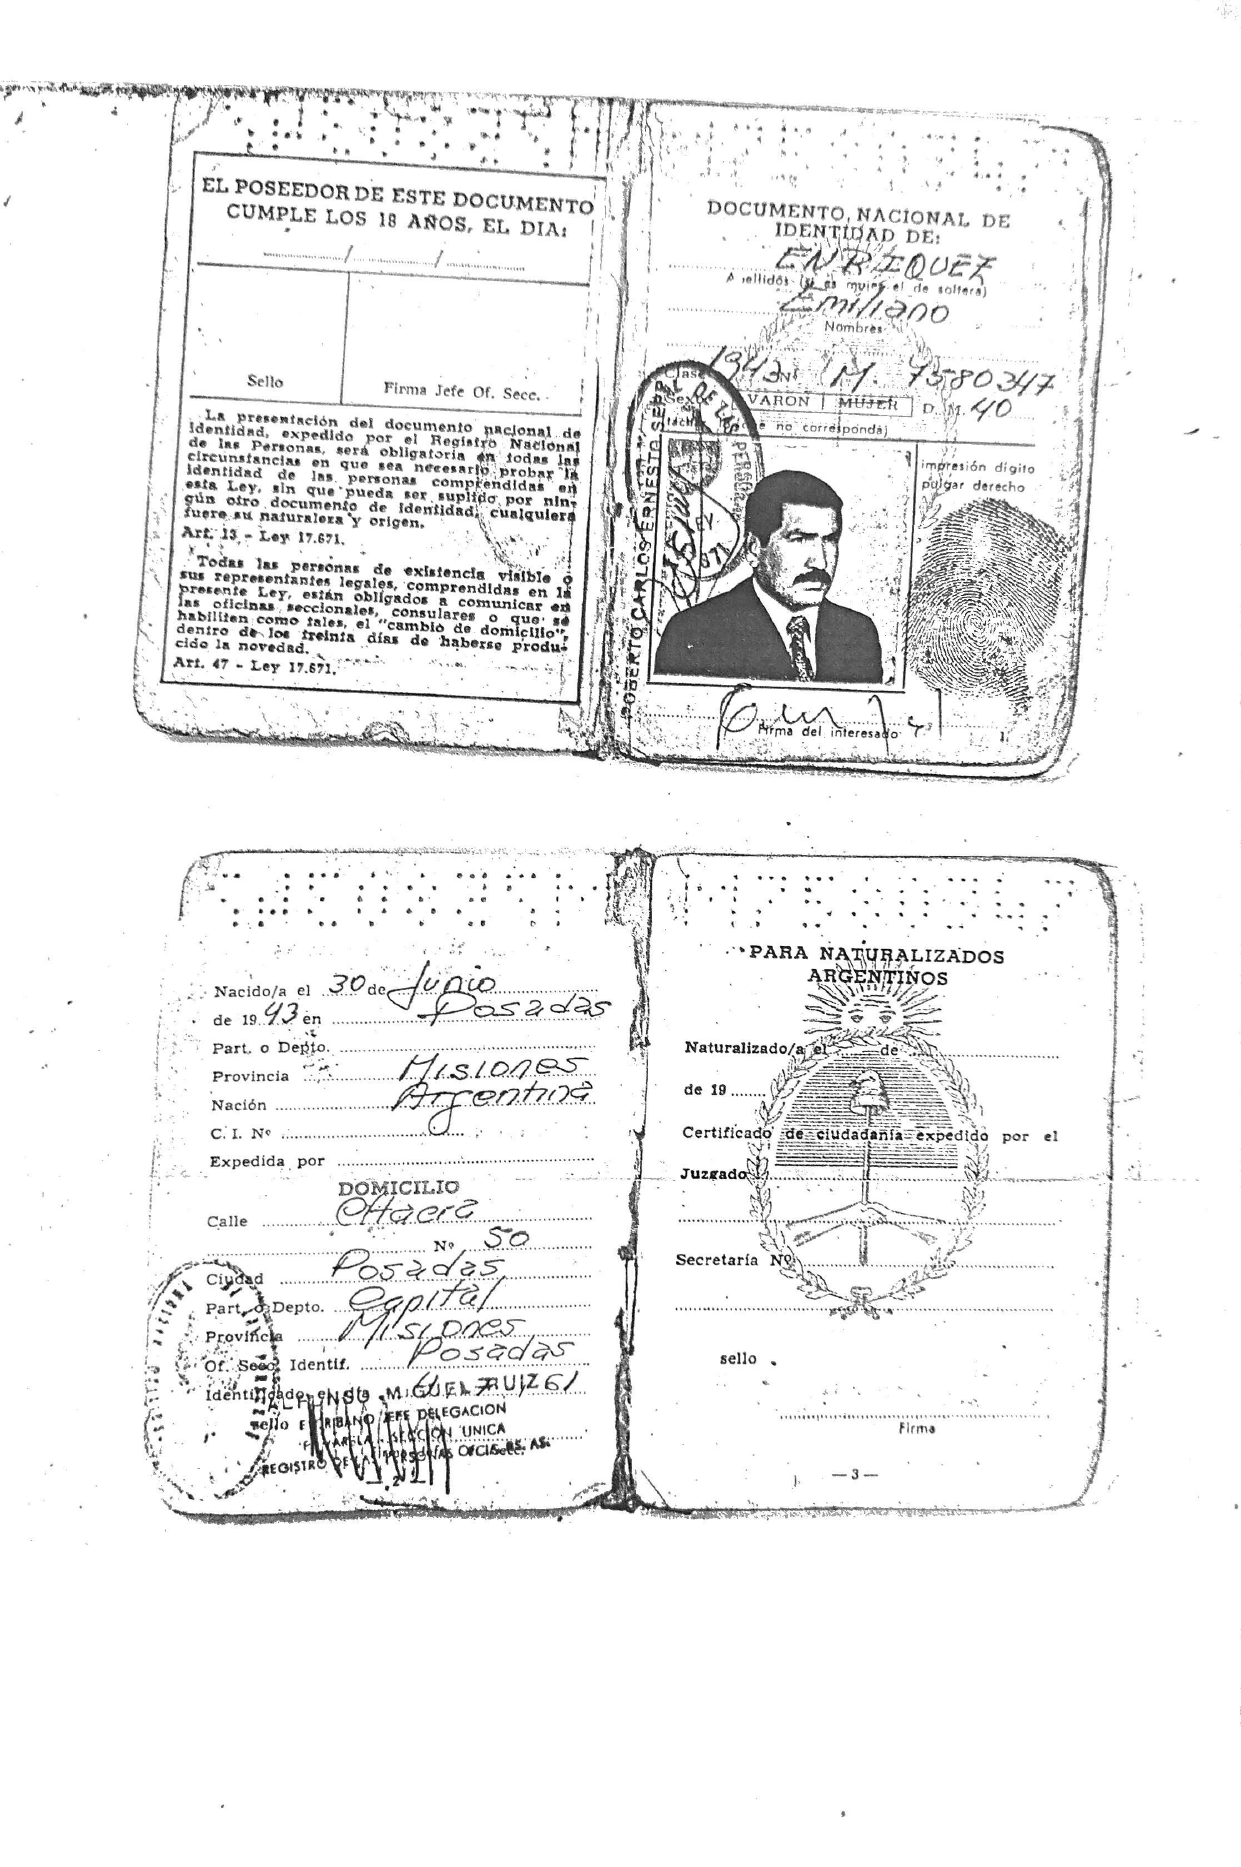 EL POSEEDOR DE ESTE DOCUMENTO
CUMPLE LOS 18 AÑOS, EL DIA:
/ /
Sello
Firma Jefe Of. Secc.
La presentación del documento nacional de
identidad, expedido por el Registro Nacional
de las Personas, será obligatoria en todas las
circunstancias en que sea necesario probar la
identidad de las personas comprendidas en
esta Ley, sin que pueda ser suplido por nin-
gún otro documento de identidad, cualquiera
fuere su naturaleza y origen.
Art. 13 - Ley 17.671.
Todas las personas de existencia visible o
sus representantes legales, comprendidas en la
presente Ley, están obligados a comunicar en
las oficinas seccionales, consulares o que se
habiliten como tales, el "cambio de domicilio",
dentro de los treinta días de haberse produ-
cido la novedad.
Art. 47 - Ley 17.671.
DOCUMENTO NACIONAL DE
IDENTIDAD DE:
ENRIQUEZ
Apellidos (si es mujer el de soltera)
Emiliano
Nombres
Clase 1943 Nº M. 7580347
Sexo VARON | MUJER D. M. 40
no corresponda)
DE LAS
ROBERTO CARLOS ERNESTO
impresión dígito
pulgar derecho
Firma del interesado
1
Nacido/a el 30 de Junio
de 19 43 en Posadas
Part. o Depto.
Provincia Misiones
Nación Argentina
C. I. Nº
Expedida por
DOMICILIO
Calle
Nº 50
Ciudad Posadas
Part. o Depto. Capital
Provincia Misiones
Of. Secc. Identif. Posadas
Identificado el día
MIGUEL RUIZ
sello
JEFE DELEGACION
SECCION UNICA
REGISTRO DE LAS PERSONAS
2
PARA NATURALIZADOS
ARGENTINOS
Naturalizado/a el de
de 19
Certificado de ciudadanía expedido por el
Juzgado
Secretaría Nº
sello
Firma
— 3 —